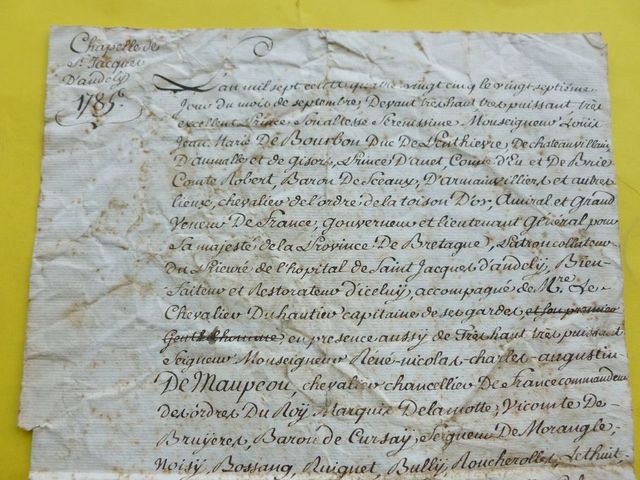 Chapelle de
St Jacques
D'andely
1785.
L'an mil sept cent quatre vingt cinq le vingt septieme
Jour du mois de septembre, Devant tres haut tres puissant tres
excellent Prince son altesse Serenissime Monseigneur Louis
Jean Marie De Bourbon Duc De Penthievre, De chateauvillain,
D'aumalle et de Gisors, Prince D'anet, Comte d'Eu et De Brie
Comte Robert, Baron De Sceaux, D'Armainvilliers et autres
Lieux, chevalier de l'ordre de la toison D'or, Amiral et Grand
Veneur De France, Gouverneur et Lieutenant Général pour
Sa majesté de la Province De Bretagne, Patron collateur
du Prieuré de l'hopital de Saint Jacques d'andely, Bien-
faiteur et Restorateur d'iceluy, accompagné de Mre Le
Chevalier Duhautier capitaine de ses gardes et son premier
Gentilhomme, en presence aussy de Tres haut tres puissant
Seigneur Monseigneur René-nicolas-charles-augustin
De Maupeou, chevalier chancellier De France commandeur
des ordres Du Roÿ, Marquis Delamotte, Vicomte De
Bruÿeres, Baron de Cursaÿ, Seigneur De Morangle,
Noisy, Bossang, Ruignet, Bully, Roucherolles, Lethuit-